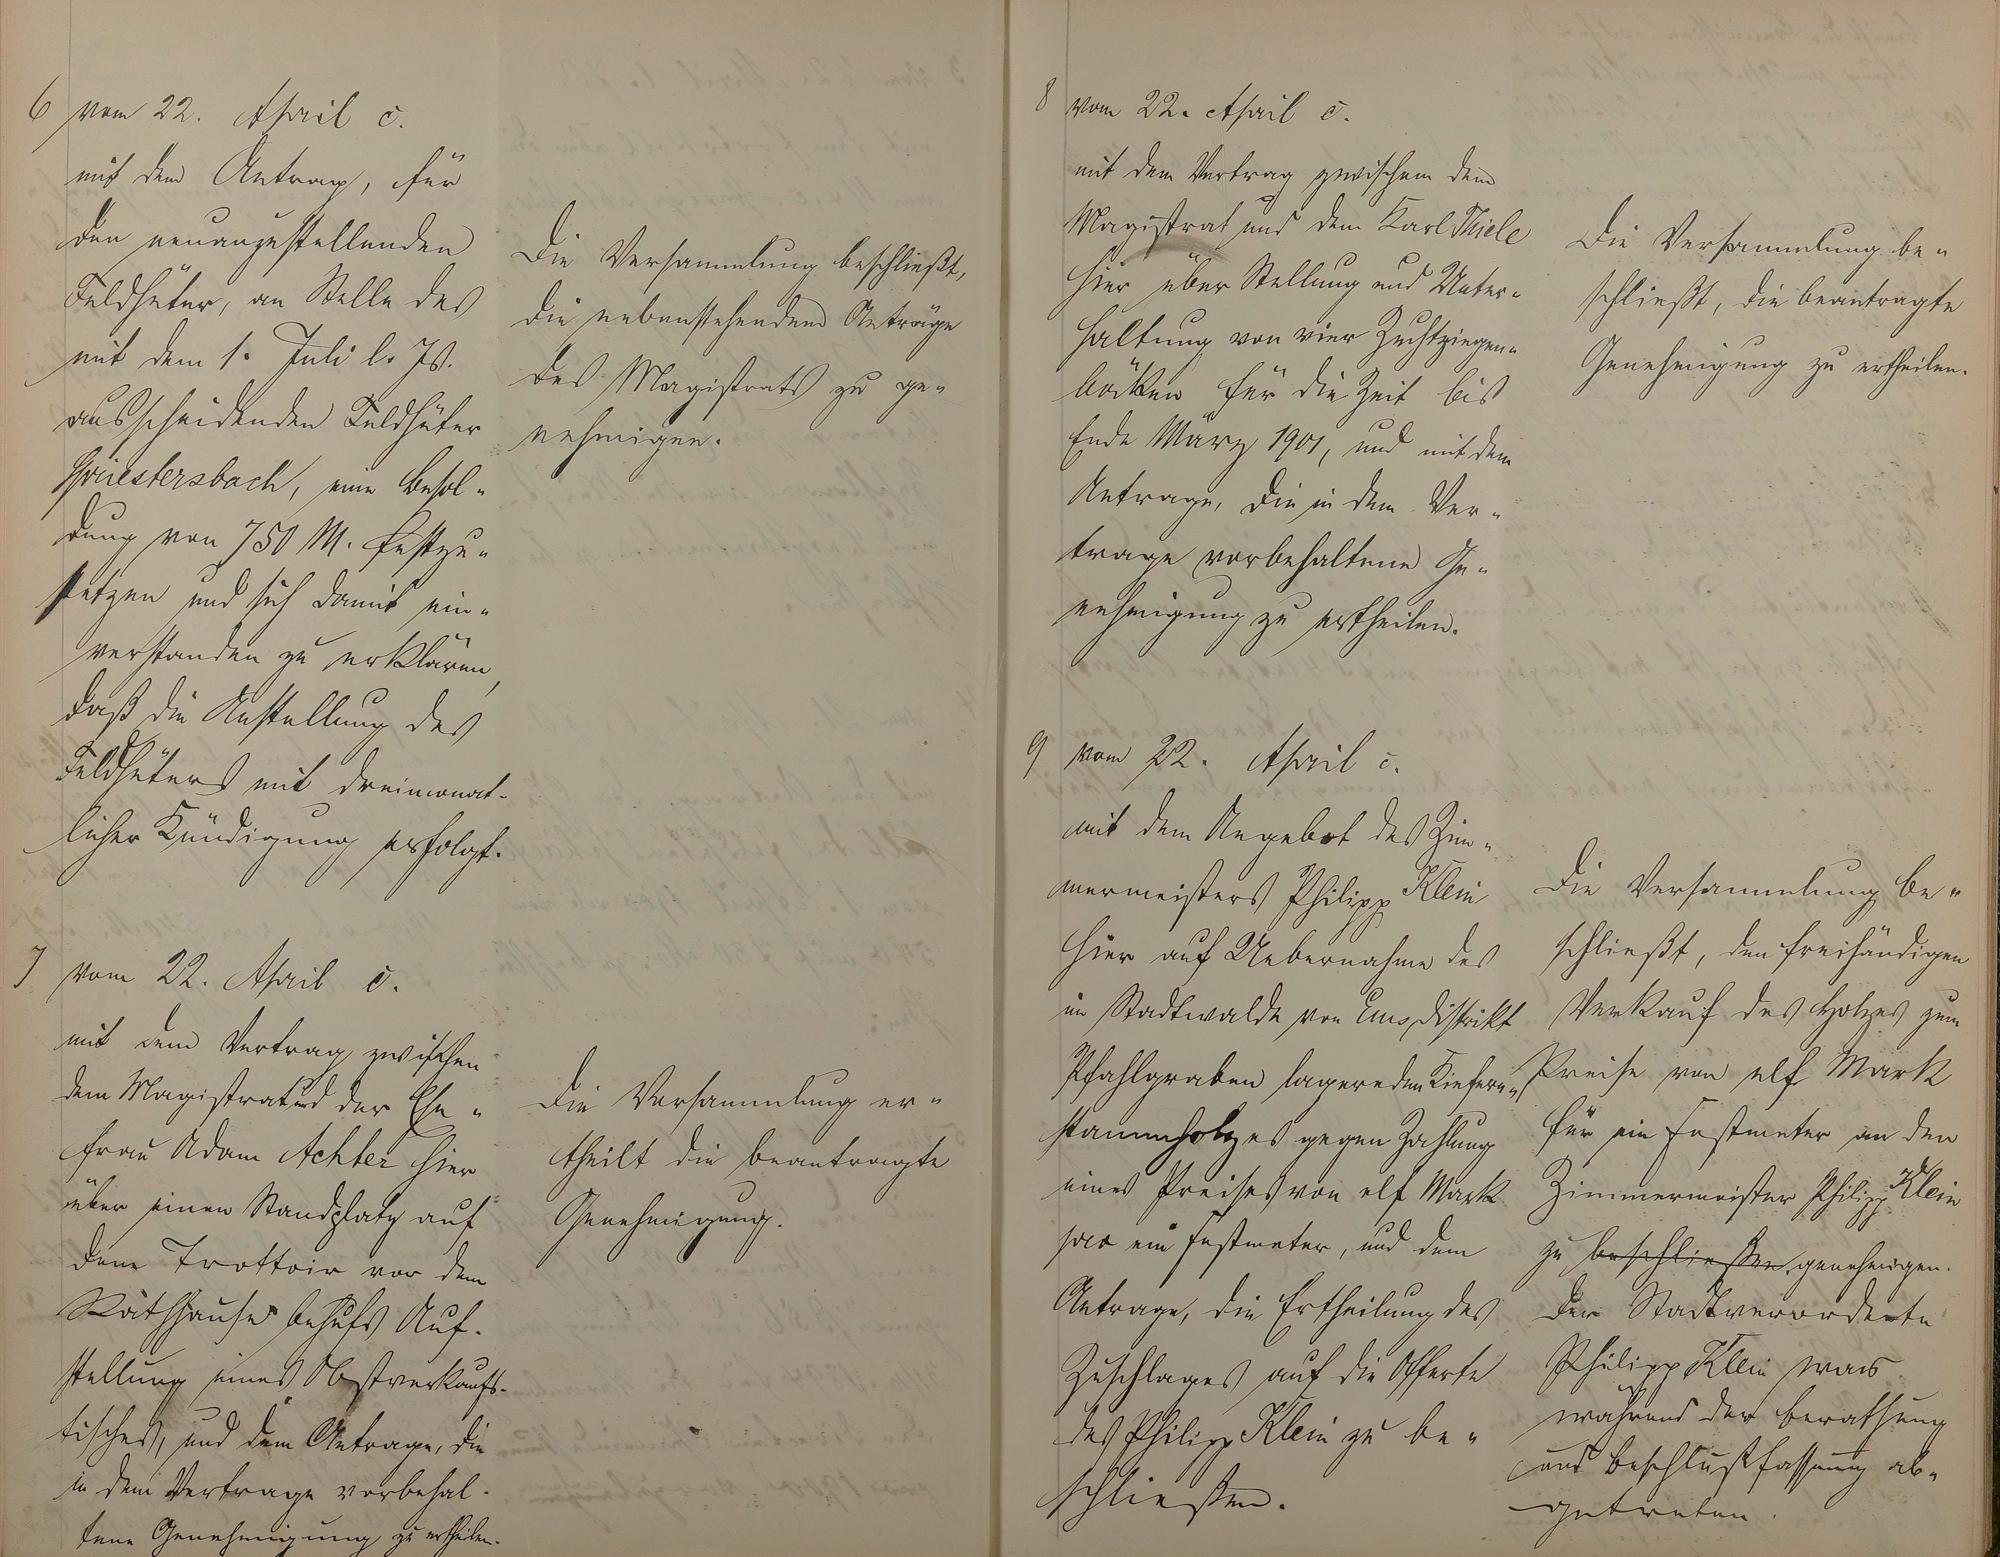 6 vom 22. April c.
mit dem Antrag, für
den neuanzustellenden
Feldhüter, an Stelle des
mit dem 1. Juli l. Js.
ausscheidenden Feldhüter
Griestersbach, eine Besol-
dung von 750 M. festzu-
setzen und sich damit ein-
verstanden zu erklären,
daß die Anstellung des
Feldhüters mit dreimonat-
licher Kündigung erfolgt.
Die Versammlung beschließt,
die nebenstehenden Anträge
des Magistrats zu ge-
nehmigen.
7 vom 22. April c.
mit dem Vertrag zwischen
dem Magistrat und der Ehe-
frau Adam Achter hier
über einen Standplatz auf
dem Trottoir vor dem
Rathhause behufs Auf-
stellung eines Obstverkaufs-
tisches, und dem Antrage, die
in dem Vertrage vorbehal-
tene Genehmigung zu ertheilen.
Die Versammlung er-
theilt die beantragte
Genehmigung.
8 vom 22. April c.
mit dem Vertrag zwischem dem
Magistrat und dem Karl Thiele
hier über Stellung und Unter-
haltung von vier Zuchtziegen-
böcken für die Zeit bis
Ende März 1901, und mit dem
Antrage, die in dem Ver-
trage vorbehaltene Ge-
nehmigung zu ertheilen.
Die Versammlung be-
schließt, die beantragte
Genehmigung zu ertheilen.
9 vom 22. April c.
mit dem Angebot des Zim-
mermeisters Philipp Klein
hier auf Uebernahme des
im Stadtwalde von Ems, Distrikt
Pfahlgraben lagernden Kiefern-
stammholzes gegen Zahlung
eines Preises von elf Mark
pro ein Festmeter, und dem
Antrage, die Ertheilung des
Zuschlages auf die Offerte
des Philipp Klein zu be-
schließen.
Die Versammlung be-
schließt, den freihändigen
Verkauf des Holzes zum
Preise von elf Mark
für ein Festmeter an den
Zimmermeister Philipp Klein
zu beschließen genehmigen.
Der Stadtverordnete
Philipp Klein war
während der Berathung
und Beschlußfassung ab-
getreten.